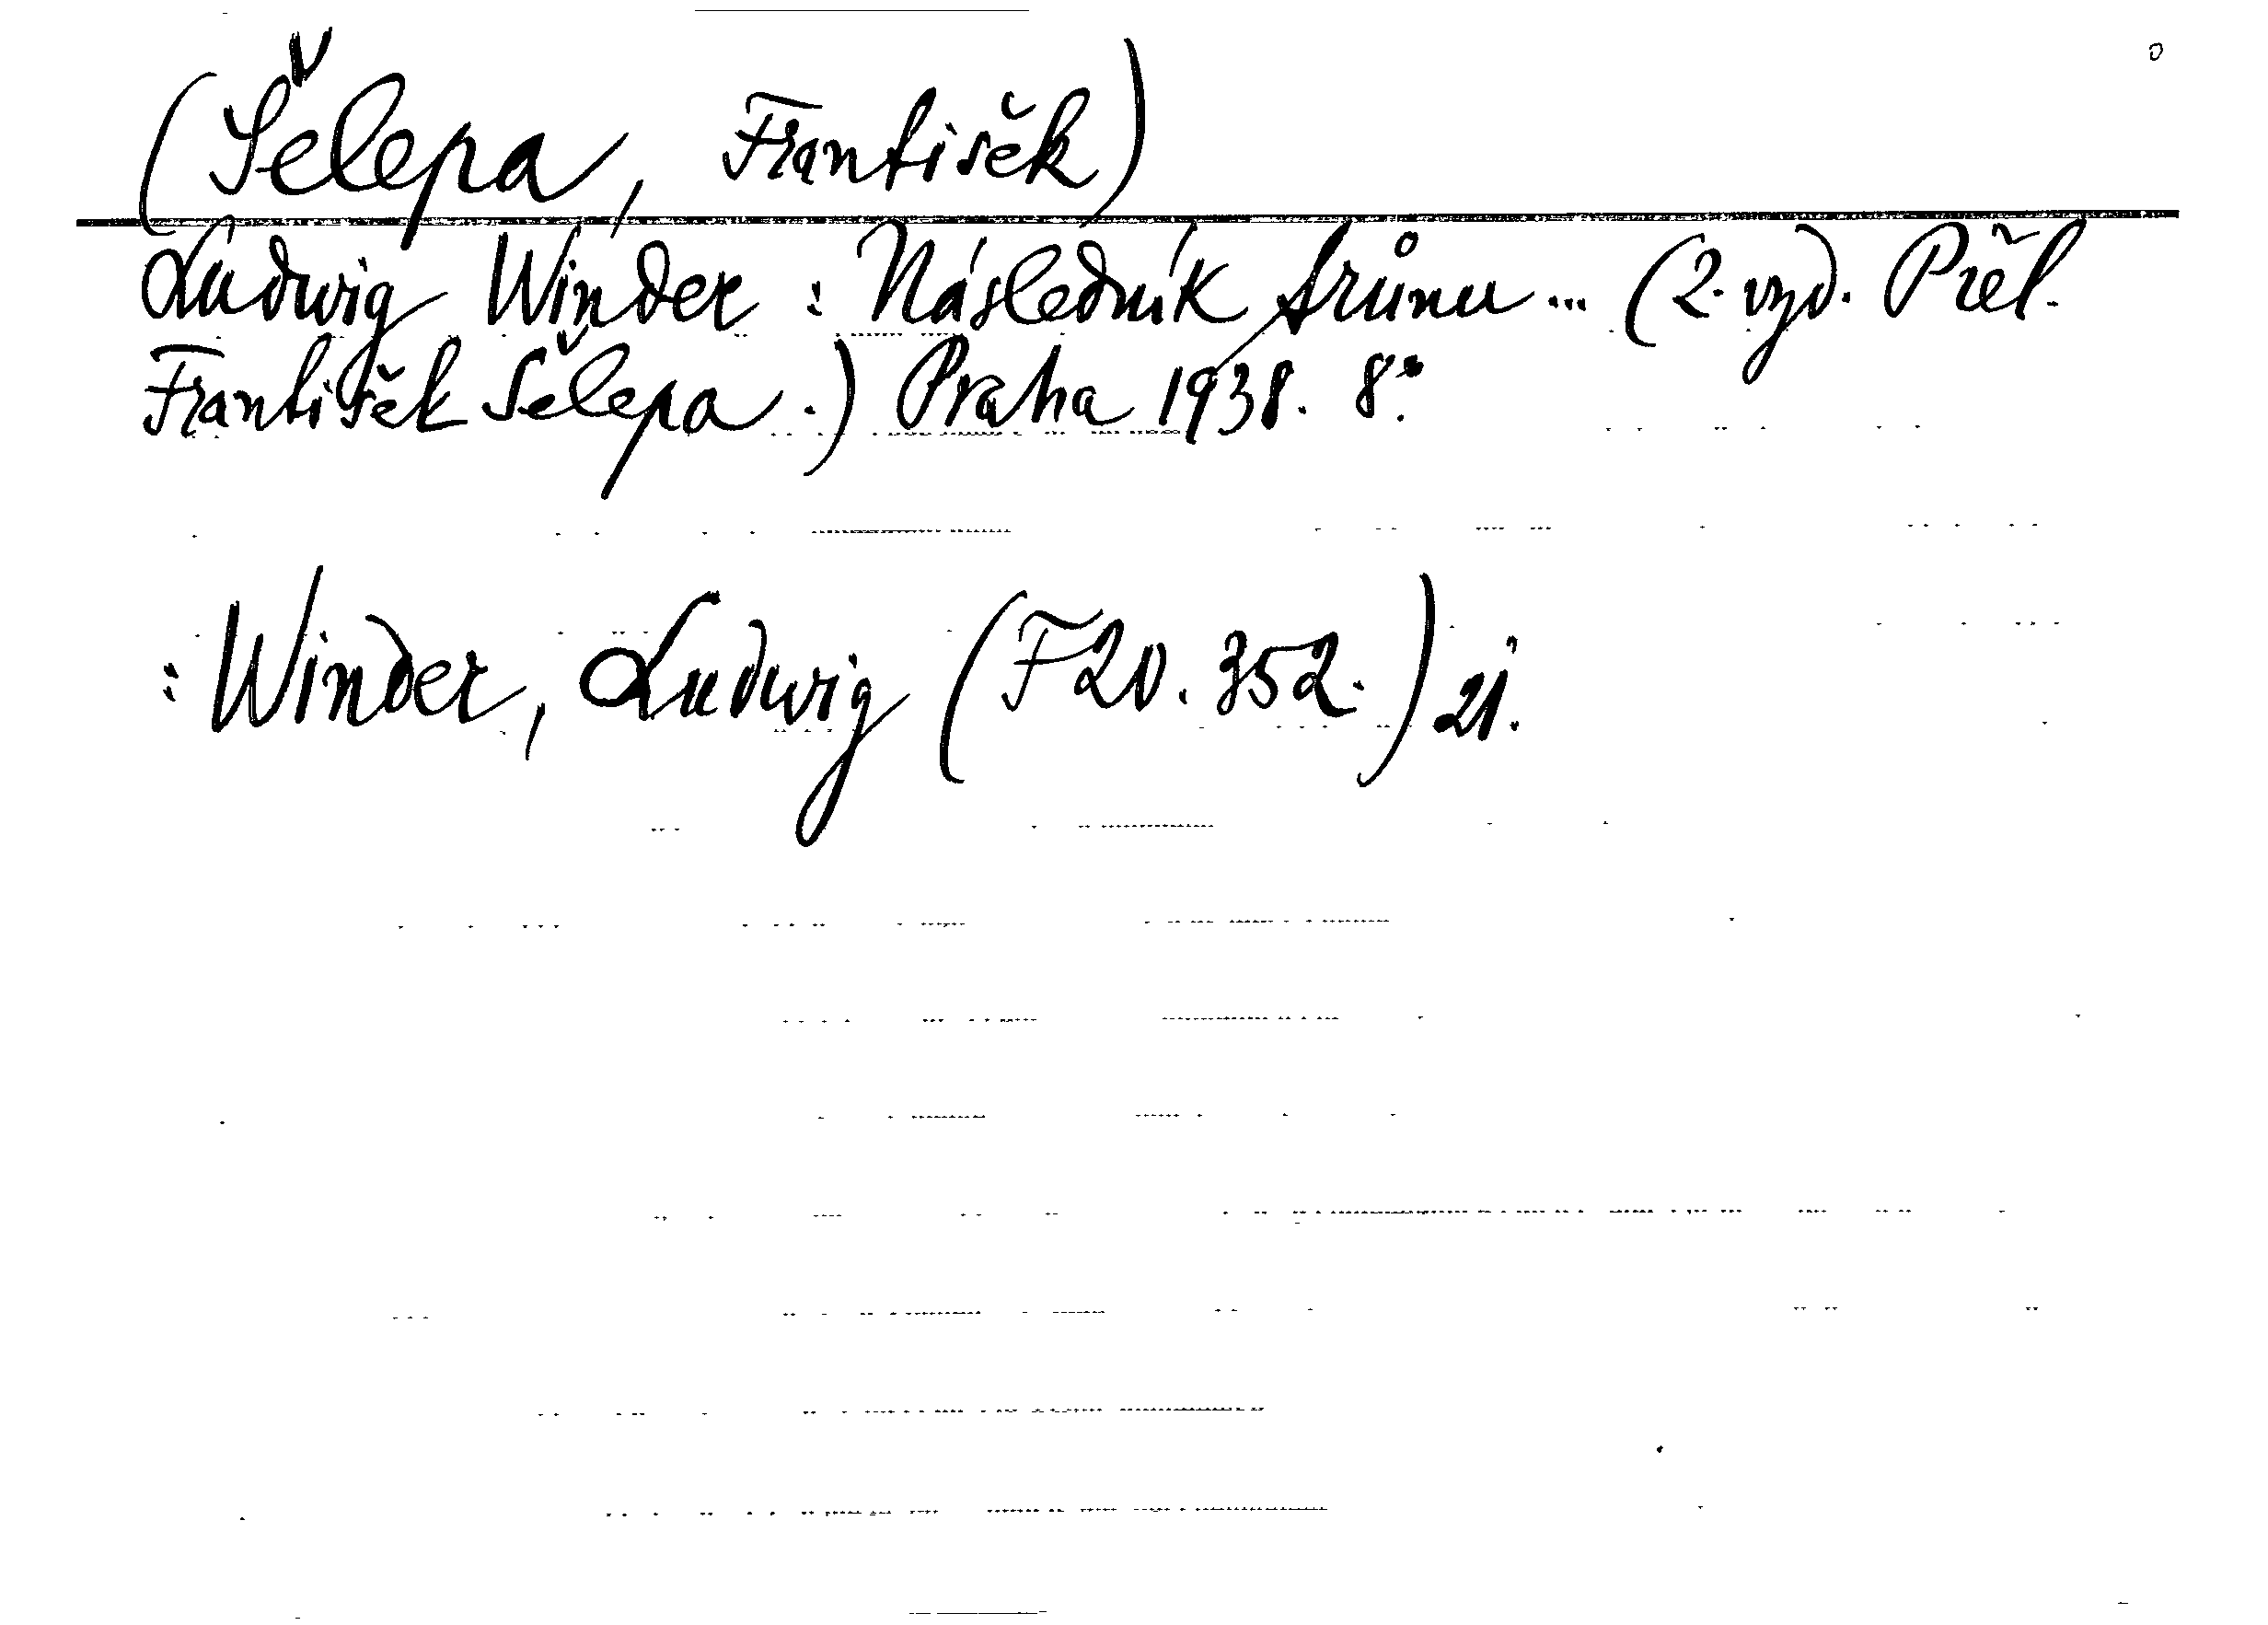 (Šelepa, František)
Ludwig Winder : Následník trůnu ... (2. vyd. Přel.
František Šelepa.) Praha 1938. 8°.
: Winder, Ludwig (F 20. 352.) 21.